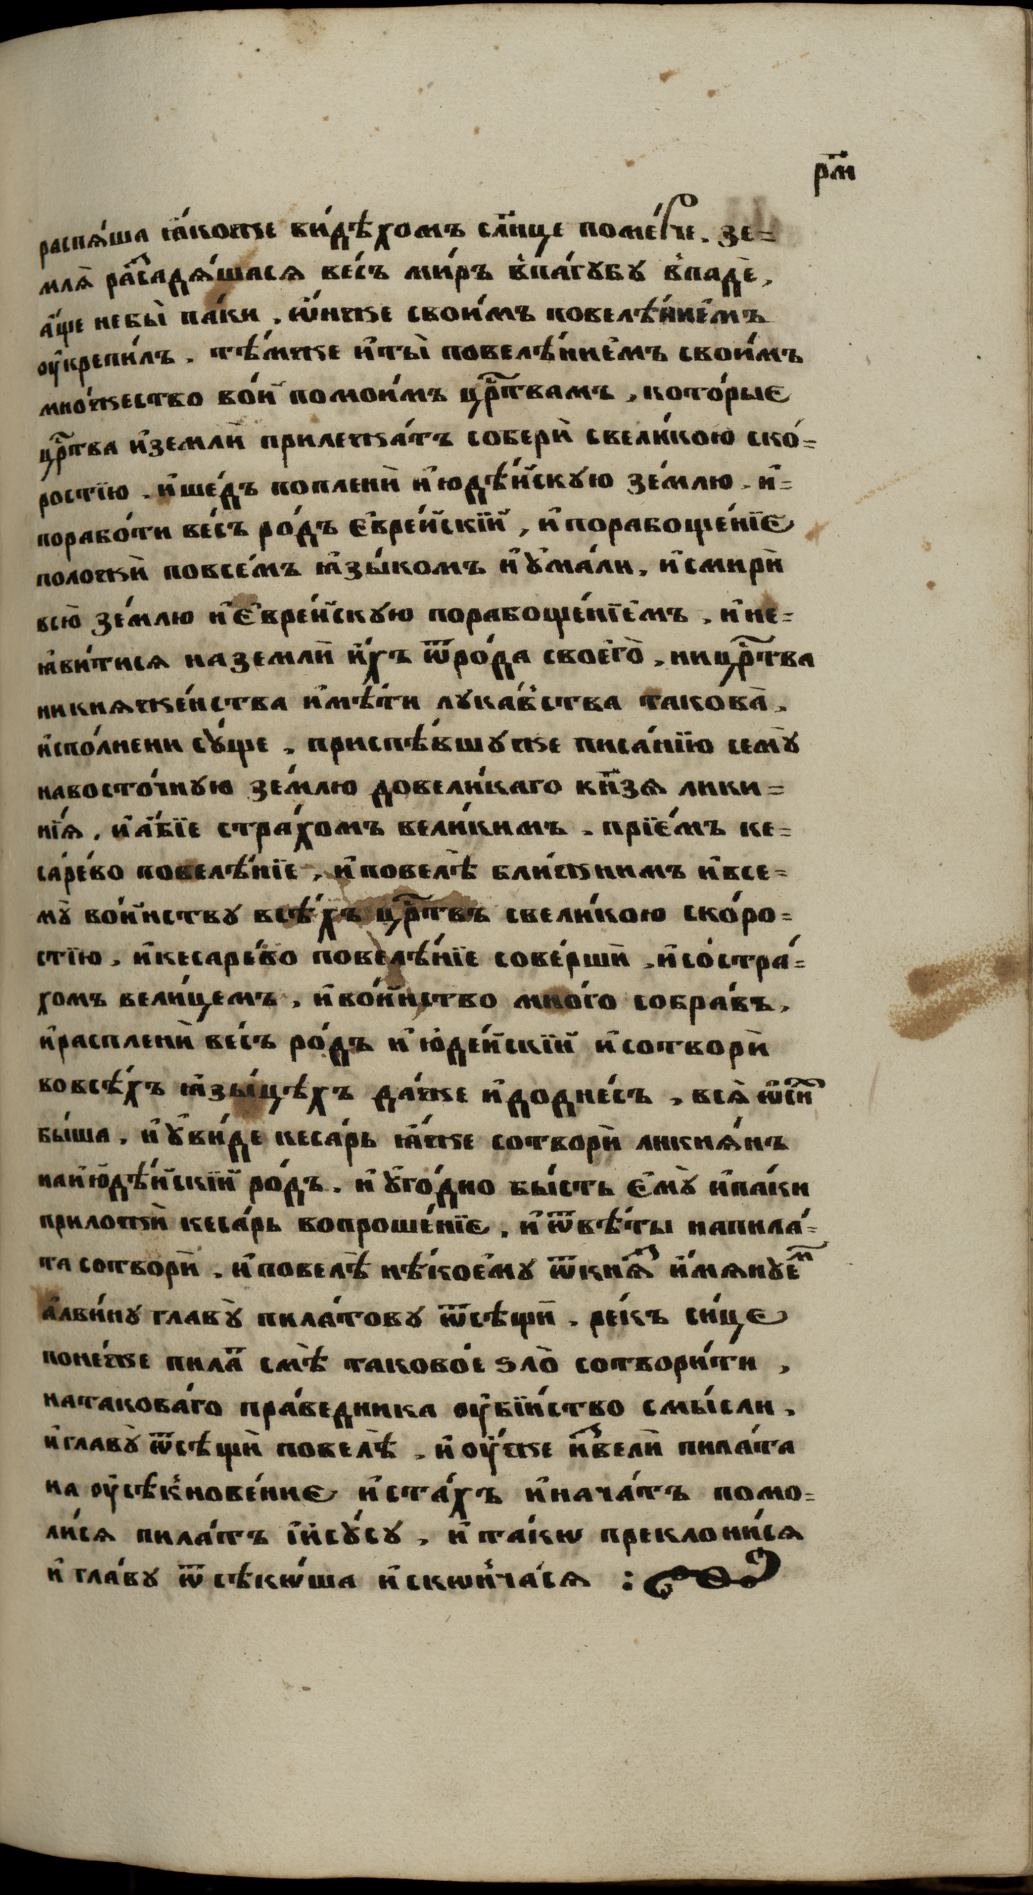 рм҃
распѧ́ша ꙗ҆́коже ви́дѣхомъ сл҃нце поме́рче. зе=
млѧ̀ ра́садѧ́шасѧ ве́сь ми́ръ в̾па́губу в̾падѐ,
а҆́ще небы̀ па́ки, ѡ҆́нже свои́мъ повелѣ́нїемъ
ѹ҆крепи́лъ. тѣ́мже и҆ты̀ повелѣ́нїемъ свои́мъ
мно́жество во́и помои́мъ цр҃твамъ, кото́рыє
цр҃тва и҆землѝ прилежа́тъ соберѝ свели́кою ско́=
ростїю. и҆ше́дъ поплени̾ и҆юдѣ́йскую зе́млю. и҆=
порабо́ти ве́сь ро́дъ є҆вре́йскїй, и҆порабоще́нїє
положѝ повсе́мъ ꙗ҆зы́комъ и҆ у҆ма́ли, и҆смирѝ
всю̀ зе́млю и҆є҆вре́йскую порабоще́нїемъ, и҆не=
ꙗ҆ви́тисѧ наземлѝ и҆́хъ ѿро́да своегѡ̀, ницр҃тва
никнѧже́нства и҆мѣ́ти лука́вства такова̀,
и҆спо́лнени су́ще, приспѣ́вшуже писа́нїю сему̀
навосто́чную зе́млю довели́каго кн҃зѧ лики=
нїѧ, и҆а҆́бїе стра́хомъ вели́кимъ. прїе́мъ ке=
са́рево повелѣ́нїе, и҆повелѣ̀ бли́жнимъ и҆все=
му̀ во́инству всѣ́хъ цр҃твъ свели́кою ско́ро=
стїю, и҆кеса́рево повелѣ́нїе соверши̾. и҆со́стра́=
хомъ вели́цемъ, и҆во́инство мно́го собра́въ,
и҆расплени̾ ве́сь ро́дъ и҆юде́йскїй и҆сотворѝ
вовсѣ́хъ ꙗ҆зы́цѣхъ да́же и҆додне́сь, всѧ̀ ѡ҆сїѝ
бы́ша, и҆ у҆ви́де кеса́рь ꙗ҆́же сотворѝ ликиѧ́нъ
наи҆юдѣ́йскїй ро́дъ. и҆ у҆го́дно бы́сть є҆му̀ и҆па́ки
приложѝ кеса́рь вопроше́нїє, и҆ ѿвѣ́ты напила́=
та сотворѝ. и҆повелѣ̀ нѣ́коему ѿкнѧ҃ и҆мѧнуе́м
а҆лви́ну главу̀ пила́тову ѿсѣщѝ. ре́къ си́це
поне́же пила́т смѣ̀ таково́е ѕло̀ сотвори́ти,
натакова́го пра́ведника ѹ҆бїи́ство смы́сли,
и҆главу̀ ѿсѣщѝ повелѣ̀. и҆ ѹ҆́же и҆́звели пила́та
на ѹ҆сѣкнове́нїє и҆ста́хъ и҆нача́тъ помо=
ли́сѧ пила́тъ і҆и҆су́су, и҆ та́кѡ преклони́сѧ
и҆ гла́ву ѿсѣкѡ́ша и҆скѡнча́сѧ :